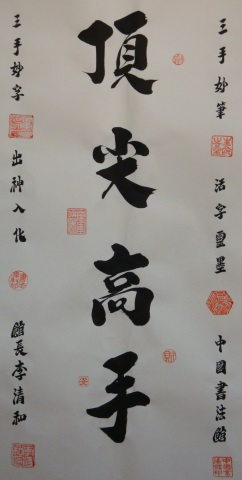 三手妙筆 活字靈墨 中国書法館
頂尖高手
三手妙字 出神入化 館長李清和